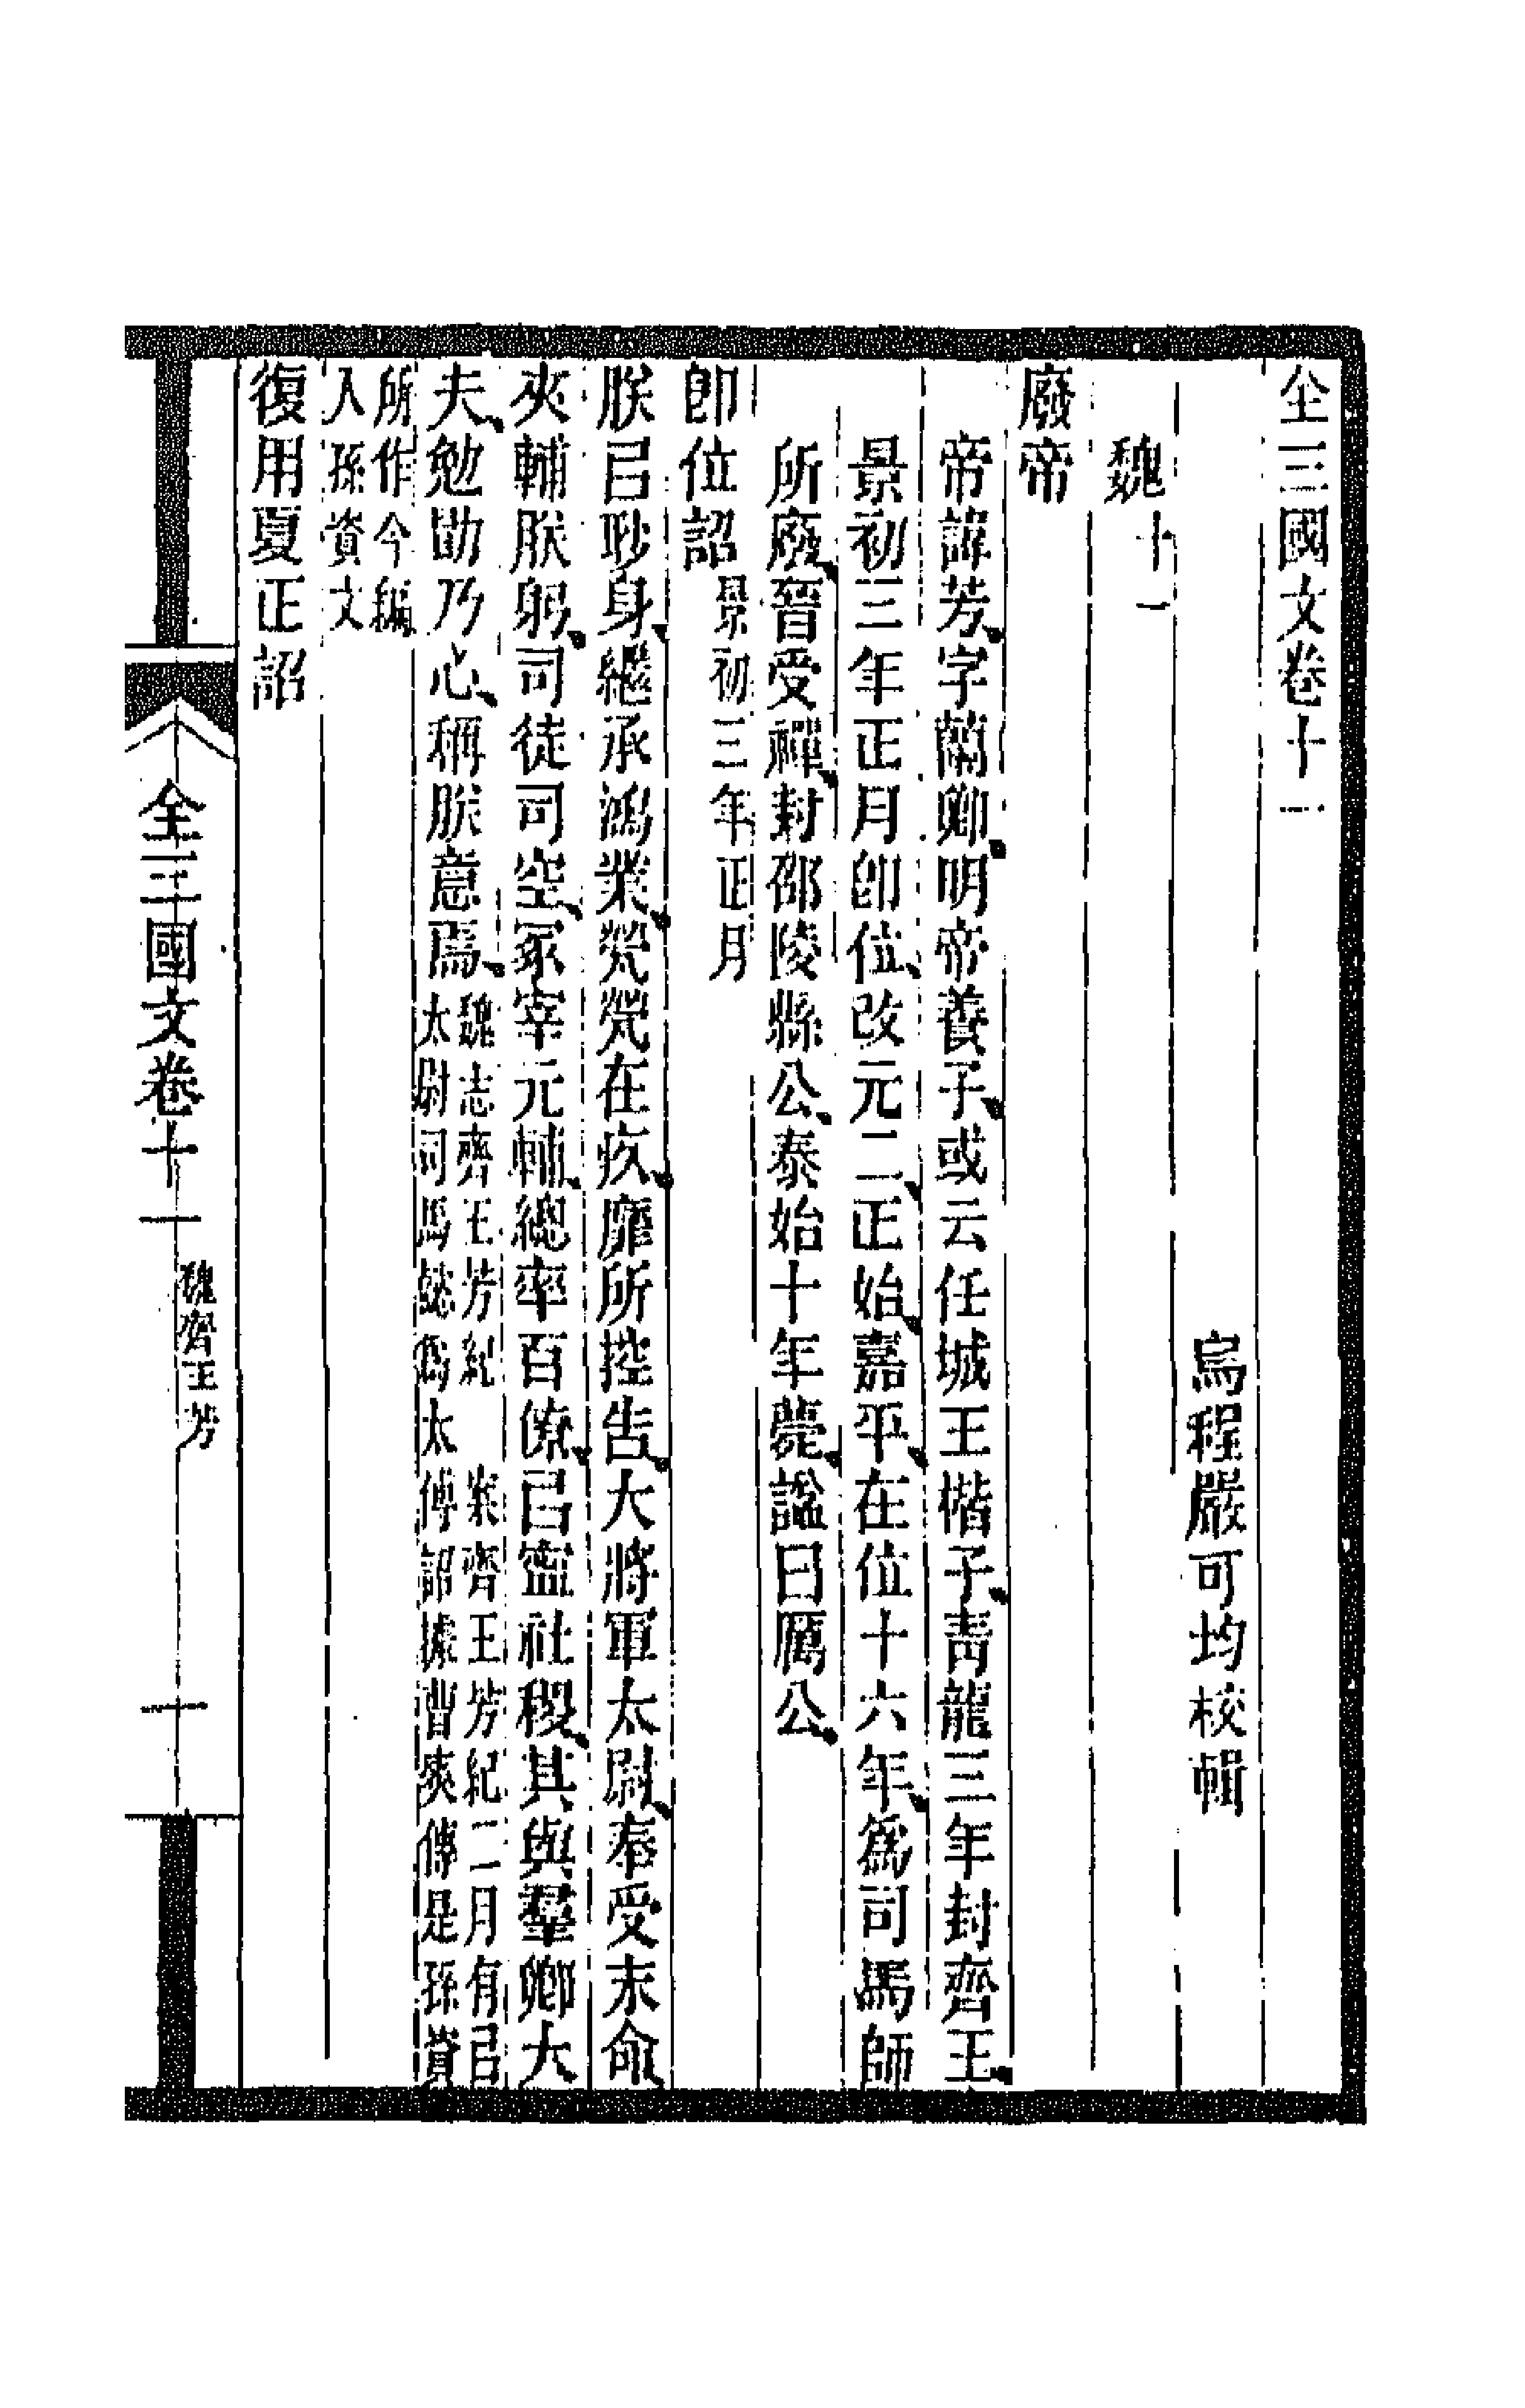 全三國文卷十一
烏程嚴可均校輯
魏十一
廢帝
帝諱芳、字蘭卿、明帝養子、或云任城王楷子、靑龍三年封齊王、
景初三年正月卽位、改元二、正始、嘉平、在位十六年、爲司馬師
所廢、晉受禪、封邵陵縣公、泰始十年薨、諡曰厲公、
卽位詔景初三年正月
朕㠯眇身、繼承鴻業、煢煢在疚、靡所控告、大將軍太尉、奉受末命、
夾輔朕躬、司徒司空、冢宰元輔、總率百僚、㠯寍社稷、其與羣卿大
夫、勉勖乃心、稱朕意焉、魏志齊王芳紀 案齊王芳紀二月有㠯
太尉司馬懿爲太傅詔據曹爽傳是孫資
所作今編
入孫資文
復用夏正詔
全三國文卷十一 魏齊王芳 一